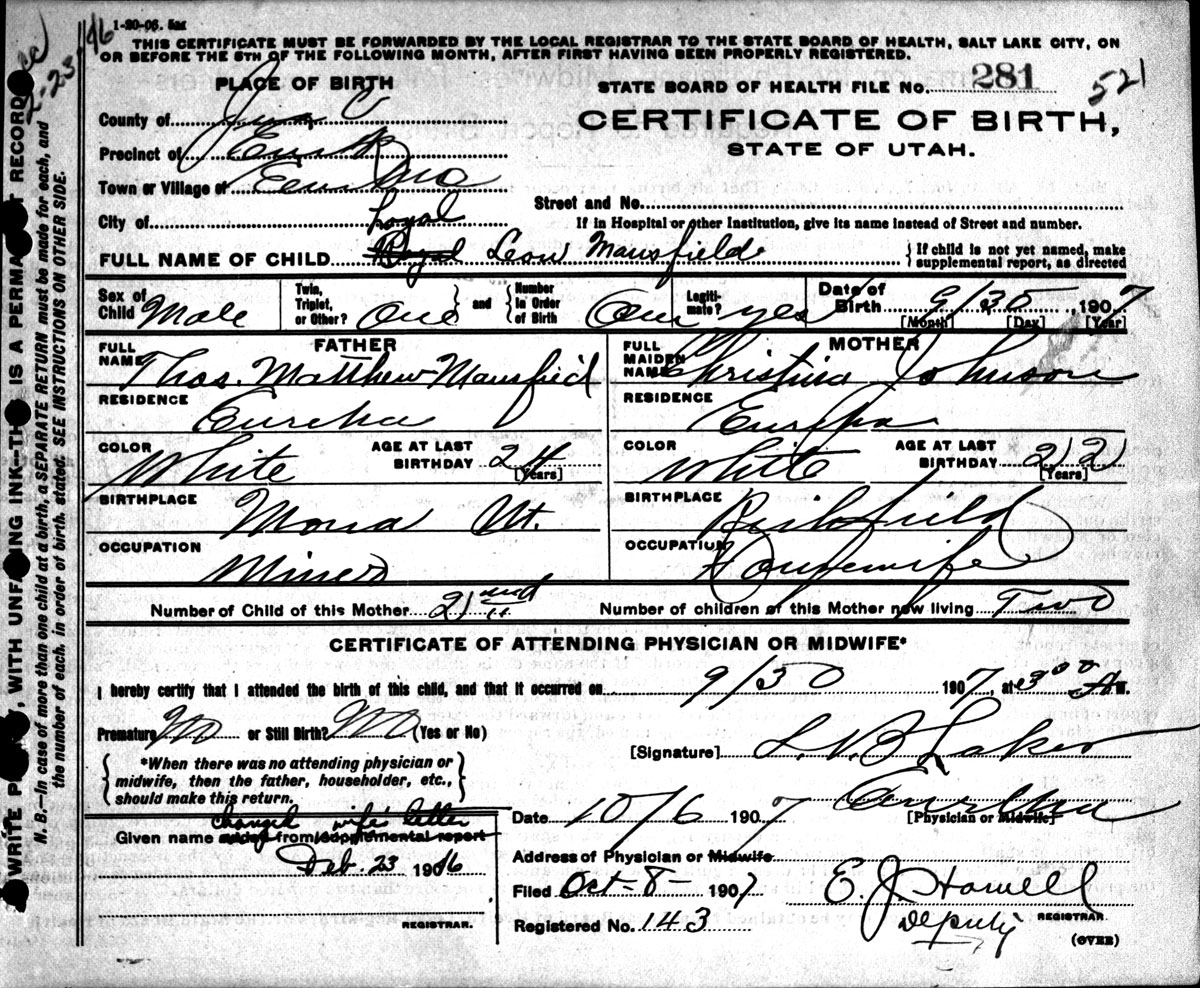 1-20-06. 5m
THIS CERTIFICATE MUST BE FORWARDED BY THE LOCAL REGISTRAR TO THE STATE BOARD OF HEALTH, SALT LAKE CITY, ON
OR BEFORE THE 5TH OF THE FOLLOWING MONTH, AFTER FIRST HAVING BEEN PROPERLY REGISTERED.
PLACE OF BIRTH
STATE BOARD OF HEALTH FILE NO. 281
521
County of
CERTIFICATE OF BIRTH,
Precinct of
STATE OF UTAH.
Town or Village of Eureka
Street and No.
City of
If in Hospital or other Institution, give its name instead of Street and number.
Loyal
FULL NAME OF CHILD Royal Leon Mansfield
If child is not yet named, make
supplemental report, as directed
Sex of Child Male
Twin, Triplet, or Other? One and Number In Order of Birth One
Legitimate? yes
Date of Birth 9/30, 1907
[Month] [Day] [Year]
FATHER
FULL NAME Thos. Matthew Mansfield
RESIDENCE Eureka
COLOR White
AGE AT LAST BIRTHDAY 24
[Years]
BIRTHPLACE Mona Ut.
OCCUPATION Miner
MOTHER
FULL MAIDEN NAME Christina Johnson
RESIDENCE Eureka
COLOR White
AGE AT LAST BIRTHDAY 22
[Years]
BIRTHPLACE Richfield
OCCUPATION Housewife
Number of Child of this Mother 2nd
Number of children of this Mother now living Two
CERTIFICATE OF ATTENDING PHYSICIAN OR MIDWIFE*
I hereby certify that I attended the birth of this child, and that it occurred on 9/30 1907, at 3 00 M.
Premature No or Still Birth? No (Yes or No)
[Signature]
*When there was no attending physician or
midwife, then the father, householder, etc.,
should make this return.
Date 10/6 1907
[Physician or Midwife]
changed wife's letter
Given name from supplemental report
Feb. 23 1916
REGISTRAR.
Address of Physician or Midwife
Filed Oct-8- 1907
E. J. Howell
Registered No. 143
Deputy REGISTRAR
(OVER)
WRITE PLAINLY, WITH UNFADING INK—THIS IS A PERMANENT RECORD
N. B.—In case of more than one child at a birth, a SEPARATE RETURN must be made for each, and
the number of each, in order of birth, stated. SEE INSTRUCTIONS ON OTHER SIDE.
2-23-16